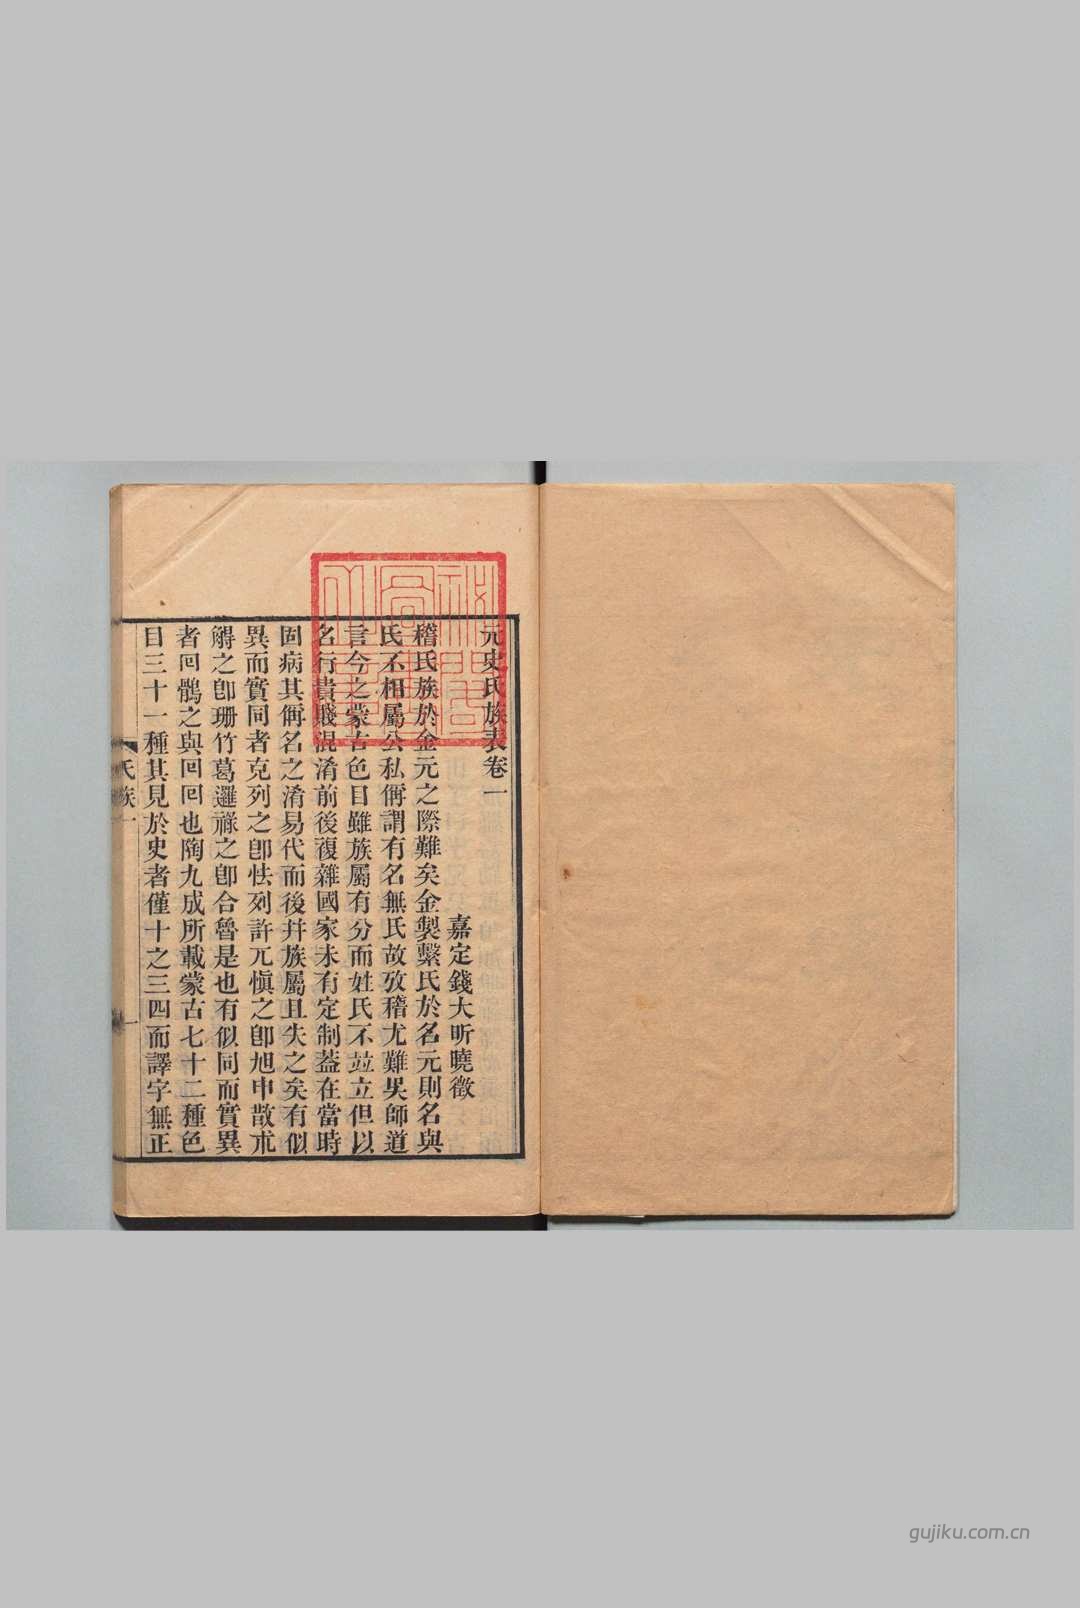 元史氏族表卷一
嘉定錢大昕曉徵
稽氏族於金元之際難矣金製繫氏於名元則名與
氏不相屬公私偁謂有名無氏故攷稽尤難吳師道
言今之蒙古色目雖族屬有分而姓氏不竝立但以
名行貴賤混淆前後複雜國家未有定制葢在當時
固病其偁名之淆易代而後幷族屬且失之矣有似
異而實同者克列之卽怯列許兀愼之卽旭申散朮
䚟之卽珊竹葛邏祿之卽合魯是也有似同而實異
者回鶻之與回回也陶九成所載蒙古七十二種色
目三十一種其見於史者僅十之三四而譯字無正
氏族一
一
gujiku.com.cn